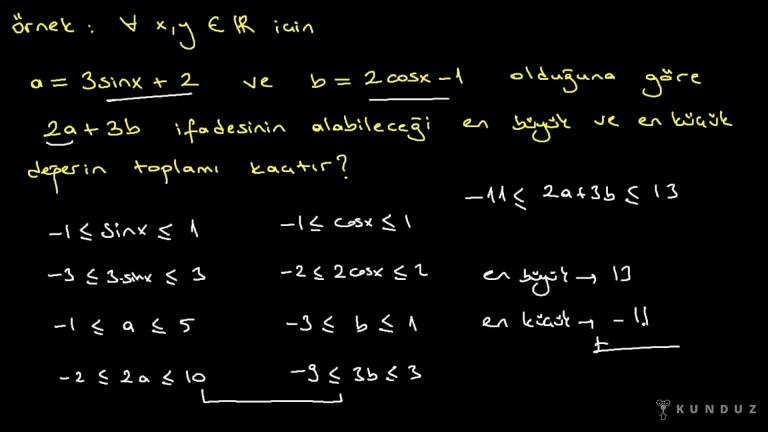 örnek : ∀ x,y ∈ ℝ için
a = 3sinx + 2 ve b = 2cosx - 1 olduğuna göre
2a + 3b ifadesinin alabileceği en büyük ve en küçük
değerin toplamı kaçtır?
-11 ≤ 2a+3b ≤ 13
-1 ≤ sinx ≤ 1
-1 ≤ cosx ≤ 1
-3 ≤ 3.sinx ≤ 3
-2 ≤ 2cosx ≤ 2
en büyük → 13
-1 ≤ a ≤ 5
-3 ≤ b ≤ 1
en küçük → -11
+
-2 ≤ 2a ≤ 10
-9 ≤ 3b ≤ 3
KUNDUZ